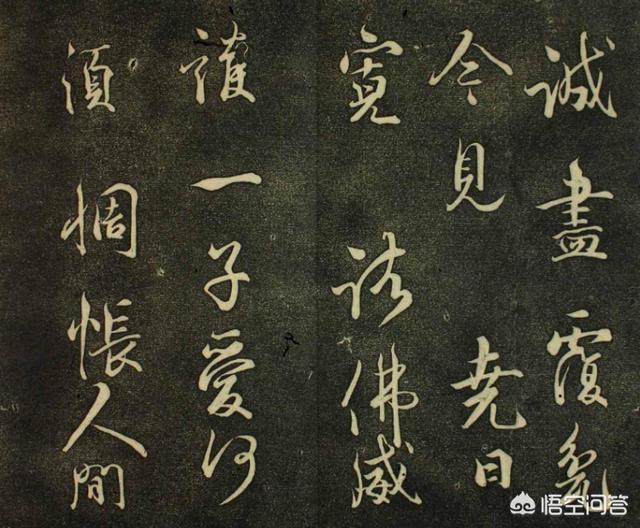 誠盡覆
今見堯日
寬諸佛威
護一子愛何
須惆悵人間
悟空问答